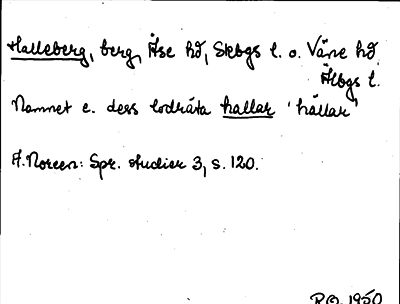 Halleberg, berg, Åse hd, Skbgs l. o. Väne hd
Älbgs l.
Namnet e. dess lodräta hallar 'hällar'
A. Noreen: Spr. studier 3, s. 120.
R.O. 1950